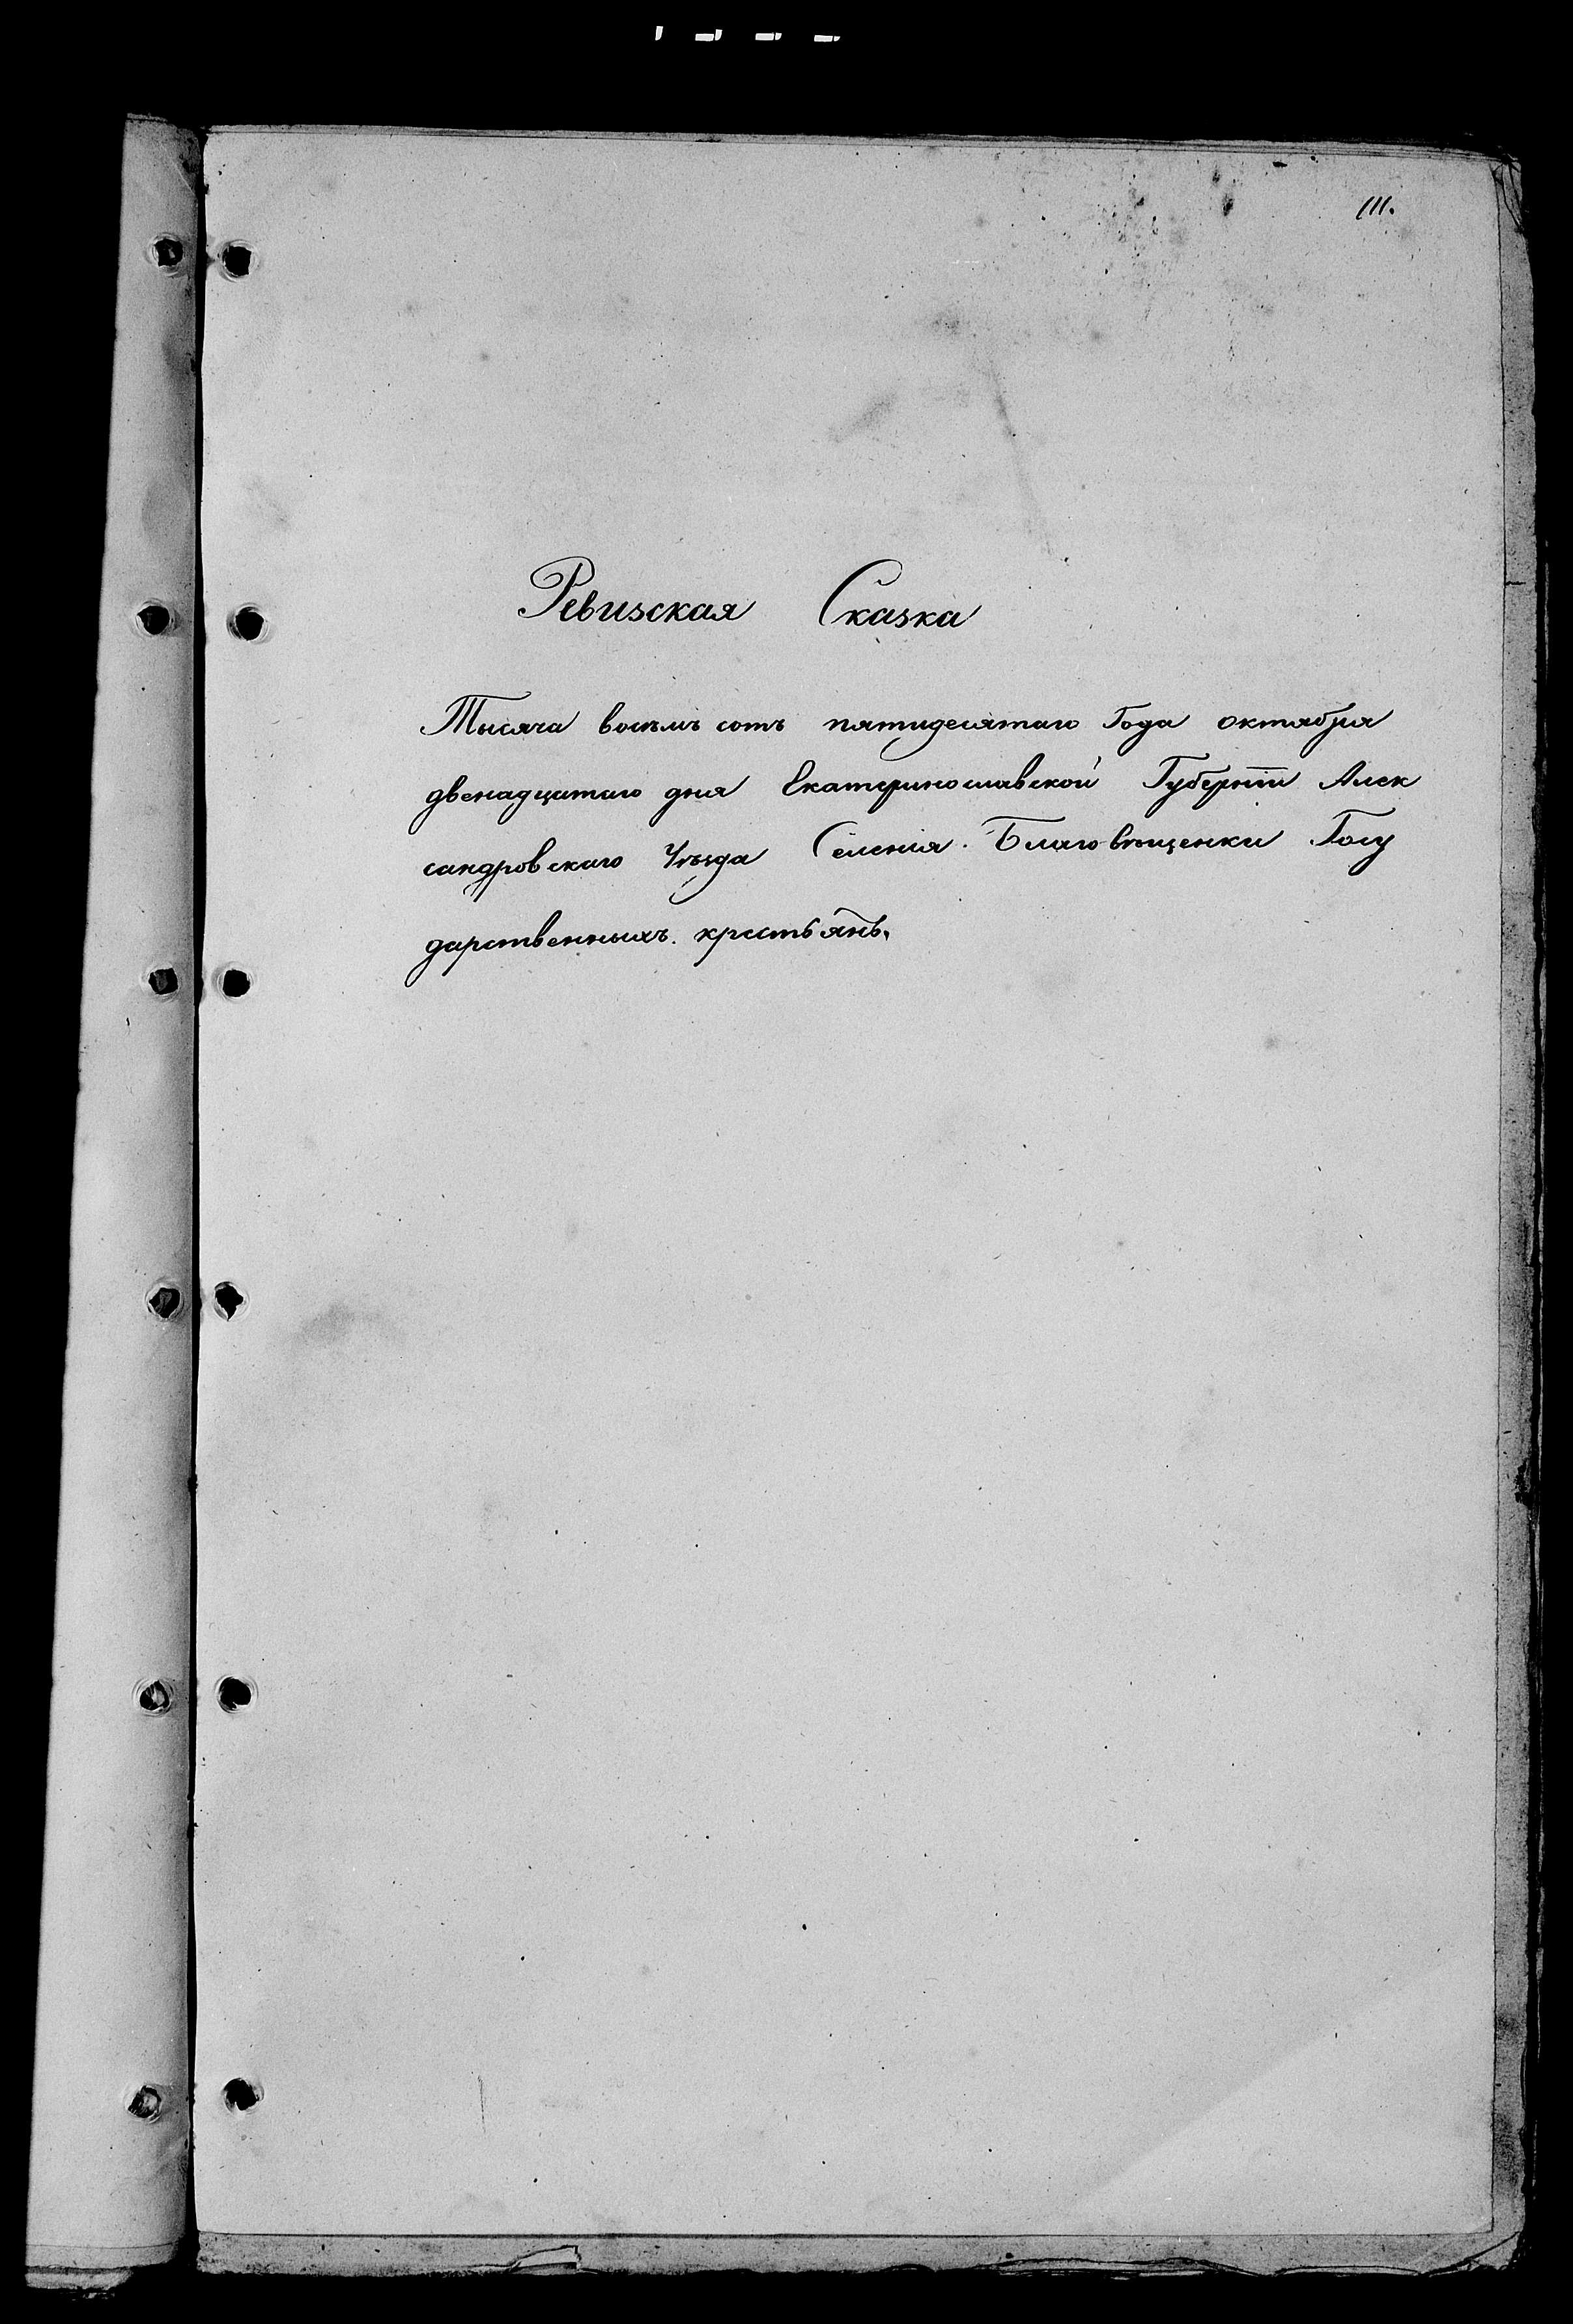 111.
Ревизская Сказка
Тысяча восемь сотъ пятидесятаго Года октября
двенадцатаго дня Екатеринославской Губерніи Алек
сандровскаго Уѣзда Селенія Благовѣщенки Госу
дарственныхъ крестьянъ.